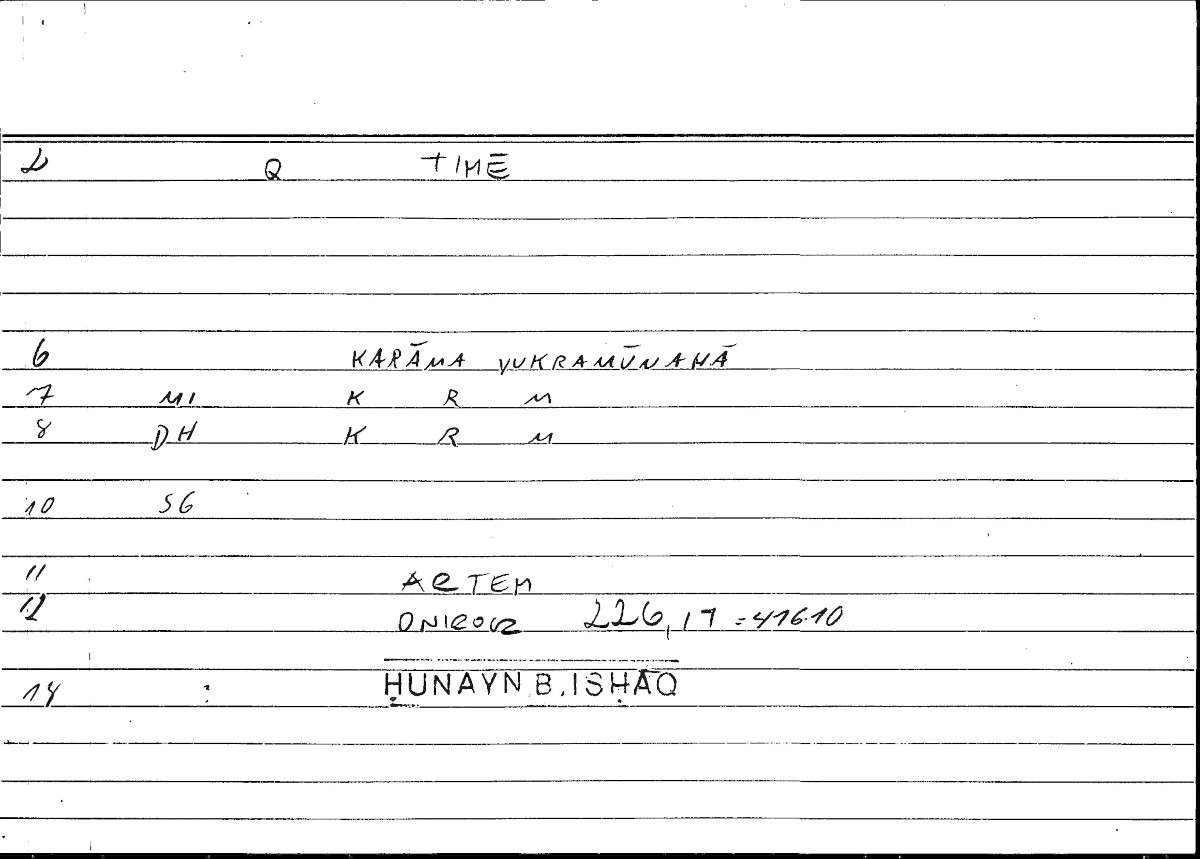 2 Q TIMĒ
6 KARĀMA YUKRAMŪNAHĀ
7 MI K R M
8 DH K R M
10 SG
11 ARTEM
12 ONIROCR 226,17 = 416.10
14 : ḤUNAYN B. ISḤĀQ